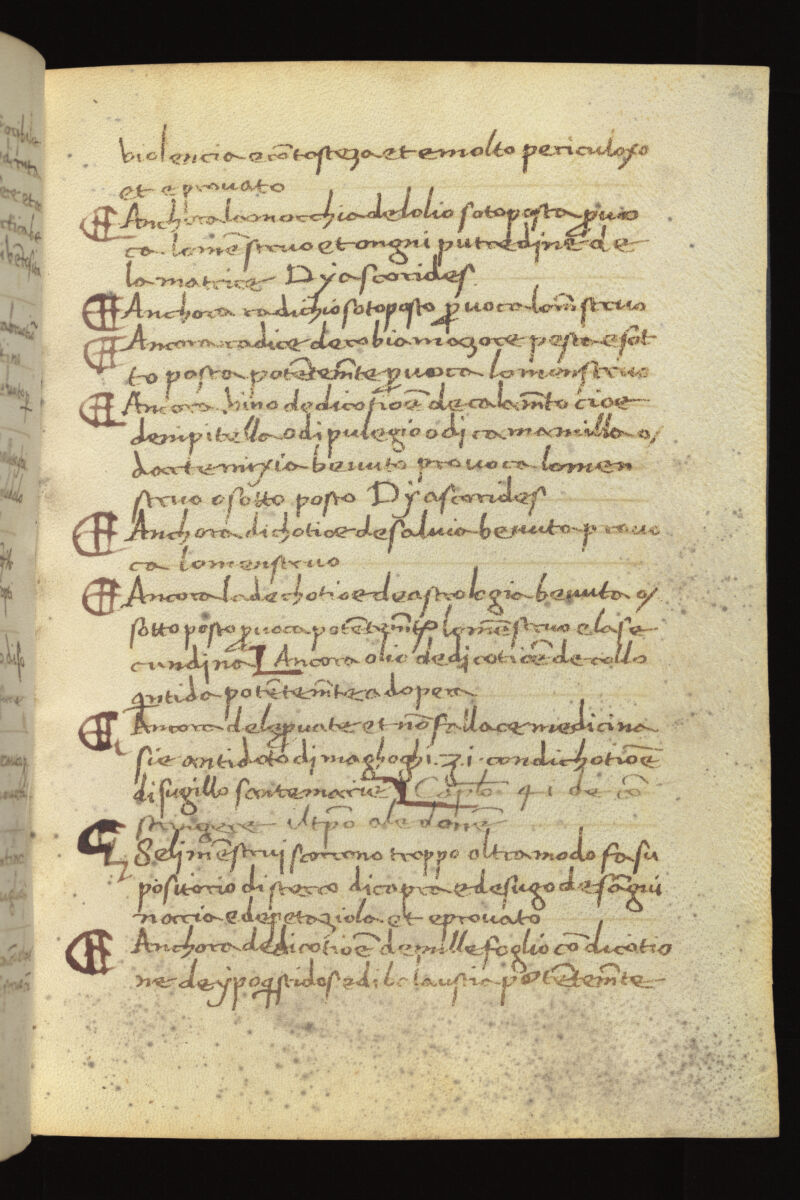 violencia e cō tosteza et e molto periculoxo
et e provato
Anchora la morchia de lolio sotoposta ꝓvo
ca lo mēstruo et ongni putredine de
la matrice Dyascorides
Anchora radichio sotoposto ꝓvoca lo mēstruo
Ancora radice de robia mazore pesta e sot
to posta potētemēte ꝓvoca lo menstruo
Ancora vino de dicotiōe de calamēto cioe
de nipitella o di pulegio o di camamilla o/
dartemixia bevuto provoca lo men
struo o sotto posto Dyascorides
Anchora dichotioe de salvia bevuta provo
ca lo menstruo
Ancora la dechotioe de astrologia bevuta o/
sotto posto ꝓvoca potētemēte lo mēstruo e la se
cundina Ancora olio de dicoticē de collo
qintida potētemēte adopera
Ancora de le ꝓvate et nō fallace medicina
sie antidoto di maghoghi .Ʒ.i. con dichotiōe
di sugillo sante marie Capło 41 de cō
stringere il tp̄o a le donē
Se li mēstrui scorreno troppo oltra modo fa su
positorio di sterco di capra e de sugo de sāgui
naria e de petaziola et e provato
Anchora de dicotiōe de mille foglio cō dicotio
ne de ypoqistidos e di balaustia potētemēte